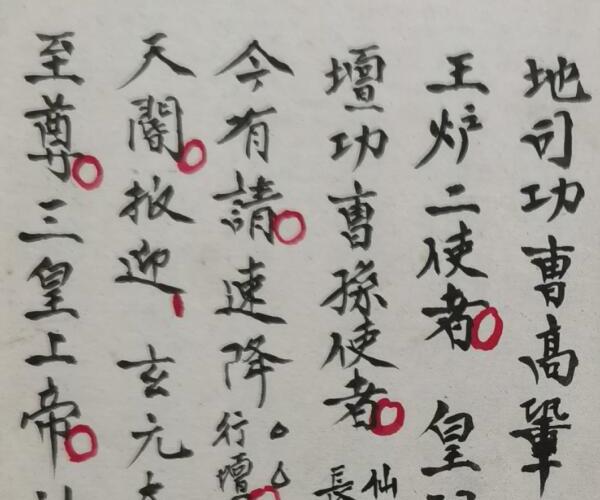 地司功曹高鞏
王炉二使者 皇
壇功曹孫使者 仙長
今有請速降行壇
天閽迎 玄元
至尊三皇上帝